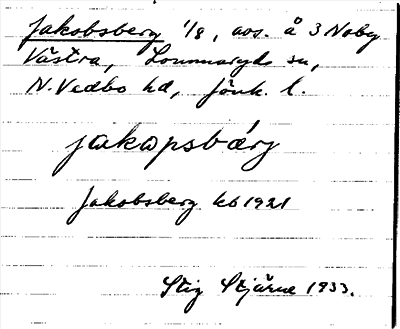 Jakobsberg 1/8, avs. å 3 Noby
Västra, Lommaryds sn,
N. Vedbo hd, Jönk. l.
jakɑpsbærj
Jakobsberg kb 1921
Stig Stjärne 1933.